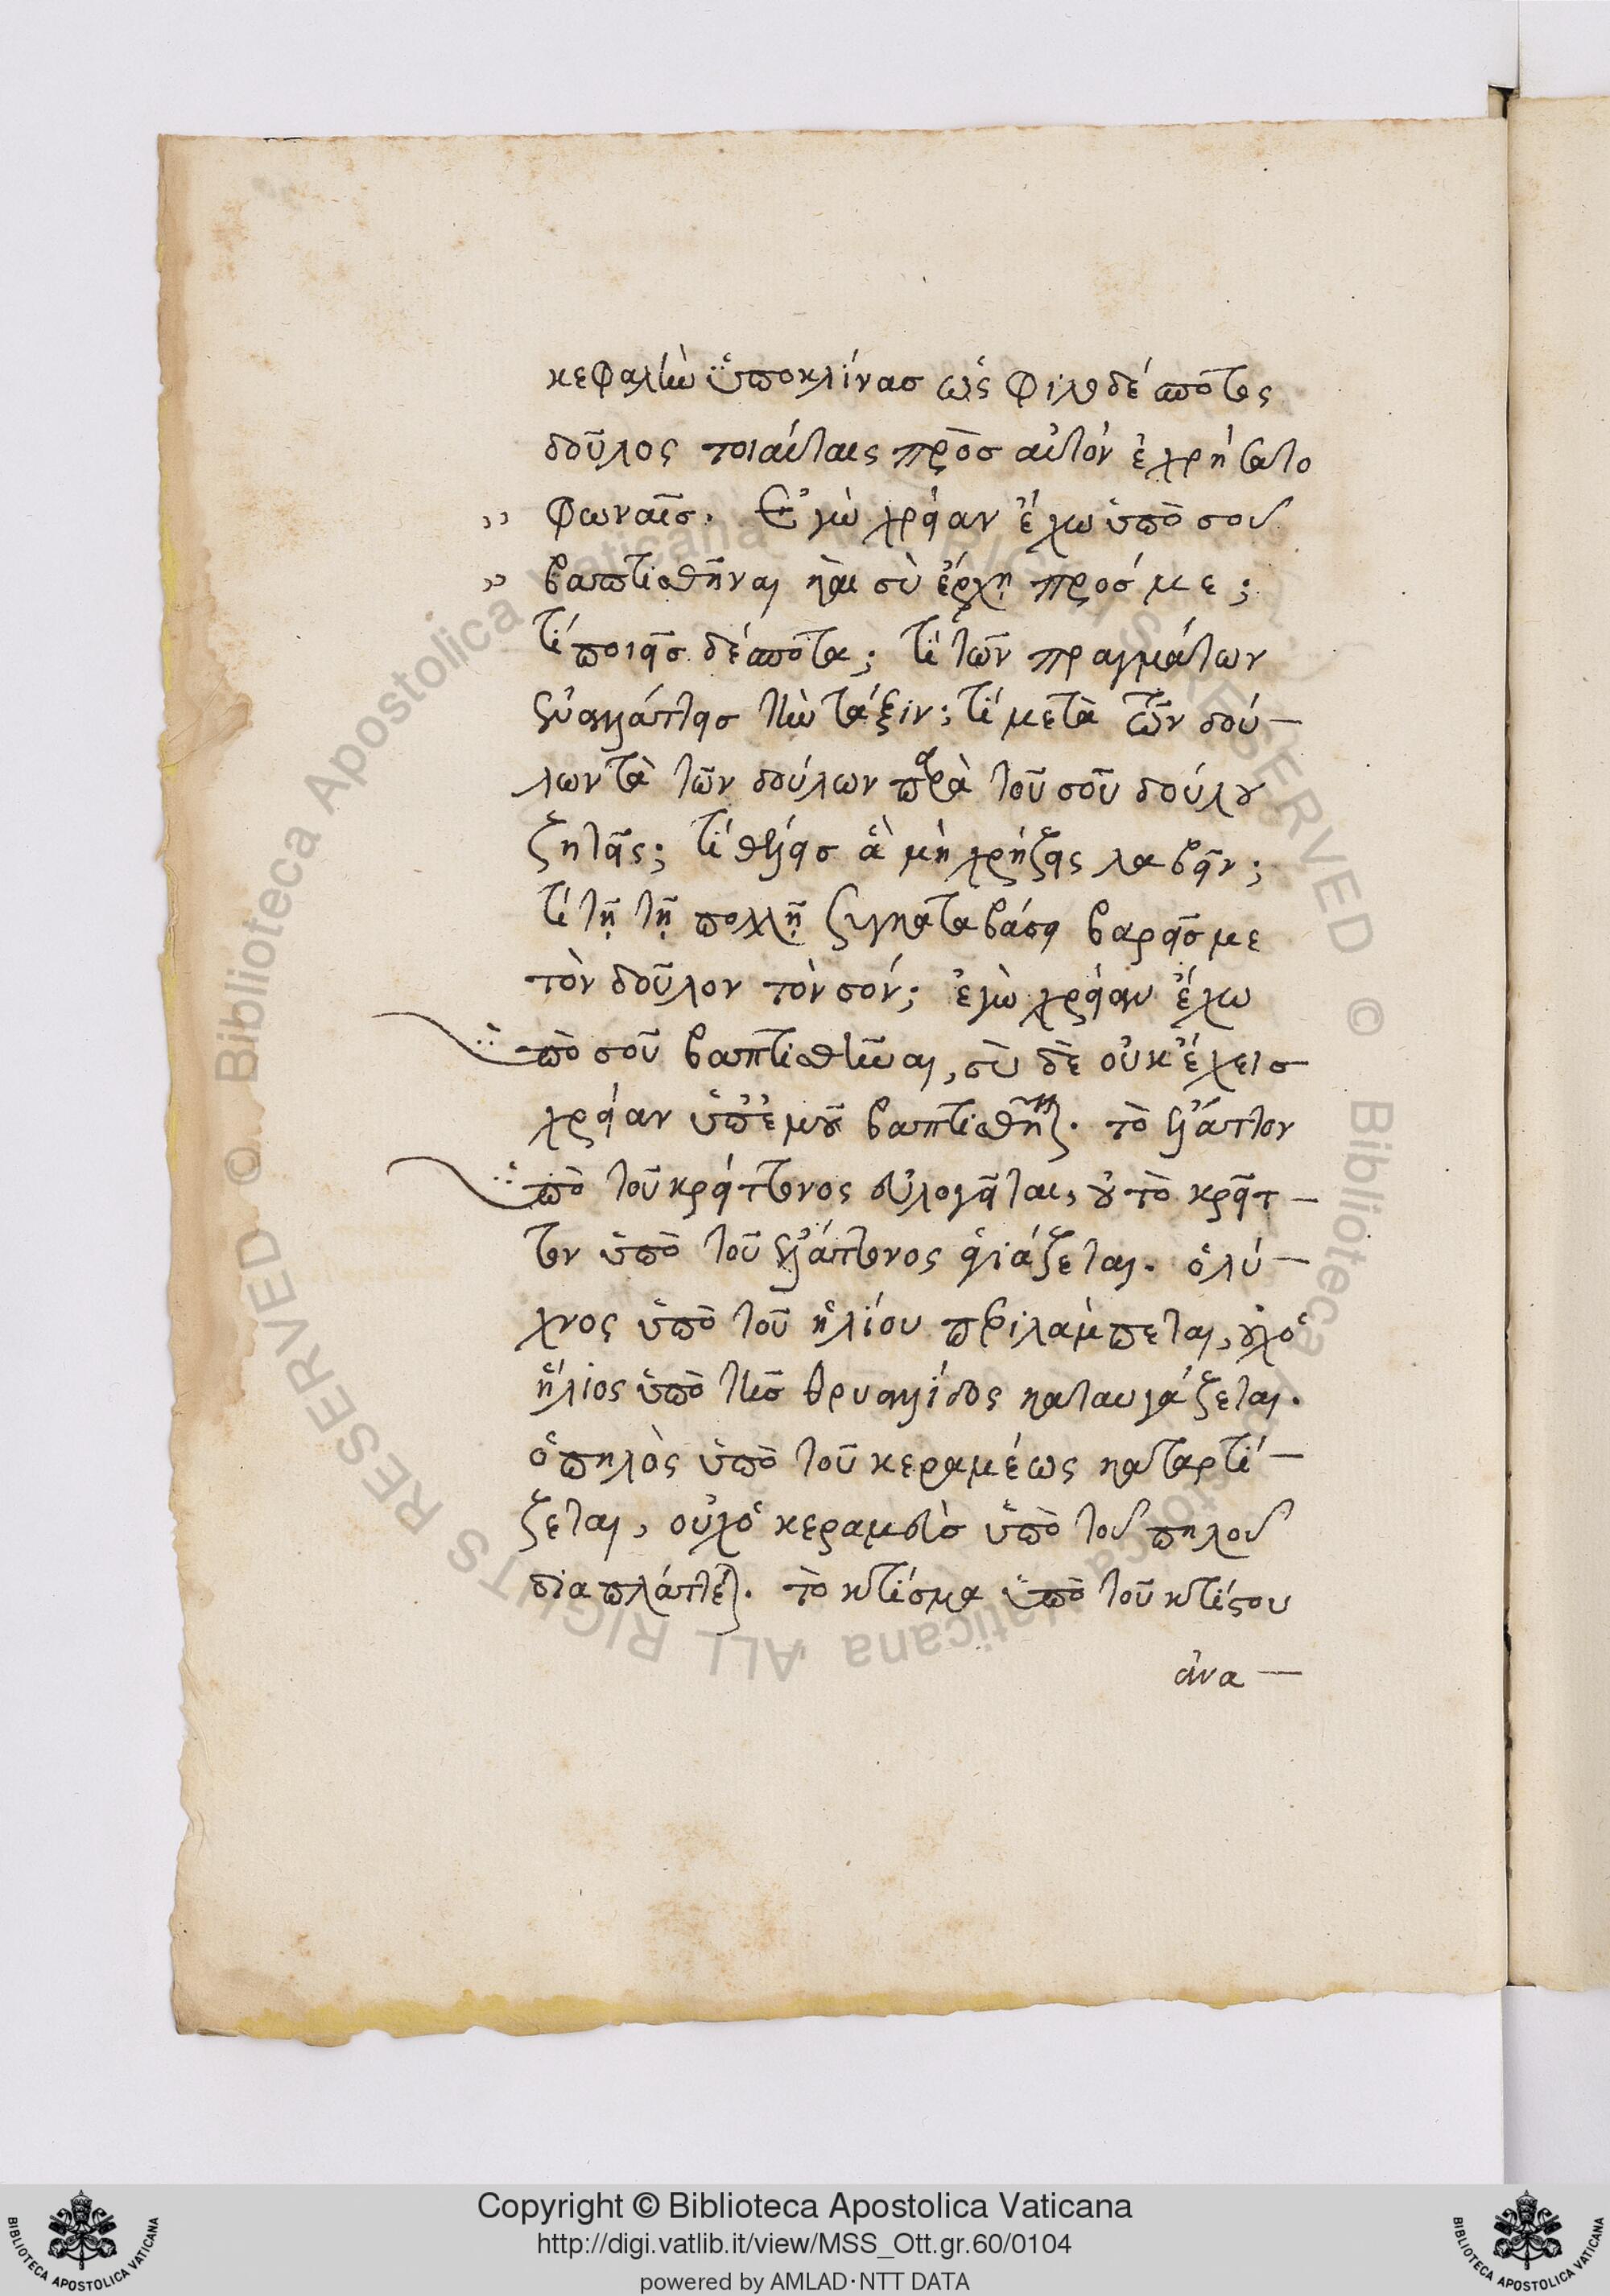 κεφαλὴν ὑποκλίνασ ὡς φιλοδέσποτος
δοῦλος τοιαύταις πρὸσ αὐτὸν ἐχρήσατο
,, φωναῖσ. Ἐγὼ χρείαν ἔχω ὑπὸ σοῦ
,, βαπτισθῆναι καὶ σὺ ἔρχη πρόσ με;
τί ποιεῖσ δέσποτα; τί τῶν πραγμάτων
ἐναλλάττεισ τὴν τάξιν; τί μετὰ τῶν δού-
λων τὰ τῶν δούλων παρὰ τοῦ σοῦ δούλου
ζητεῖς; τί θέλεισ ἃ μὴ χρήζεις λαβεῖν;
τί τῇ τῇ πολλῇ συγκαταβάσει βαρεῖσ με
τὸν δοῦλον τὸν σόν; ἐγὼ χρείαν ἔχω
ὑπὸ σοῦ βαπτισθῆναι, σὺ δὲ οὐκ ἔχεισ
χρείαν ὑπ' ἐμοῦ βαπτισθῆναι. τὸ ἔλαττον
ὑπὸ τοῦ κρείττονος εὐλογεῖται, οὐ τὸ κρεῖτ-
τον ὑπὸ τοῦ ἐλάττονος ἁγιάζεται. ὁ λύ-
χνος ὑπὸ τοῦ ἡλίου περιλάμπεται, οὐχ ὁ
ἥλιος ὑπὸ τῆσ θρυαλλίδος καταυγάζεται.
ὁ πηλὸς ὑπὸ τοῦ κεραμέως καταρτί-
ζεται, οὐχ ὁ κεραμεὺσ ὑπὸ τοῦ πηλοῦ
διαπλάττεται. τὸ κτίσμα ὑπὸ τοῦ κτίστου
ἀνα-
Copyright © Biblioteca Apostolica Vaticana
http://digi.vatlib.it/view/MSS_Ott.gr.60/0104
powered by AMLAD·NTT DATA
BIBLIOTECA APOSTOLICA VATICANA
BIBLIOTECA APOSTOLICA VATICANA
© Biblioteca Apostolica Vaticana ALL RIGHTS RESERVED © Biblioteca Apostolica Vaticana ALL RIGHTS RESERVED